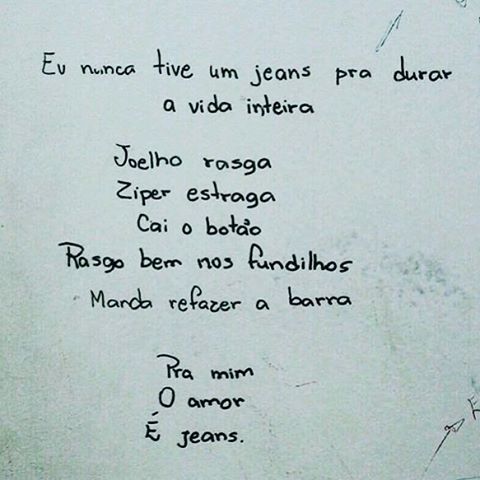 Eu nunca tive um jeans pra durar
a vida inteira
Joelho rasga
Ziper estraga
Cai o botão
Rasgo bem nos fundilhos
Manda refazer a barra
Pra mim
O amor
É jeans.